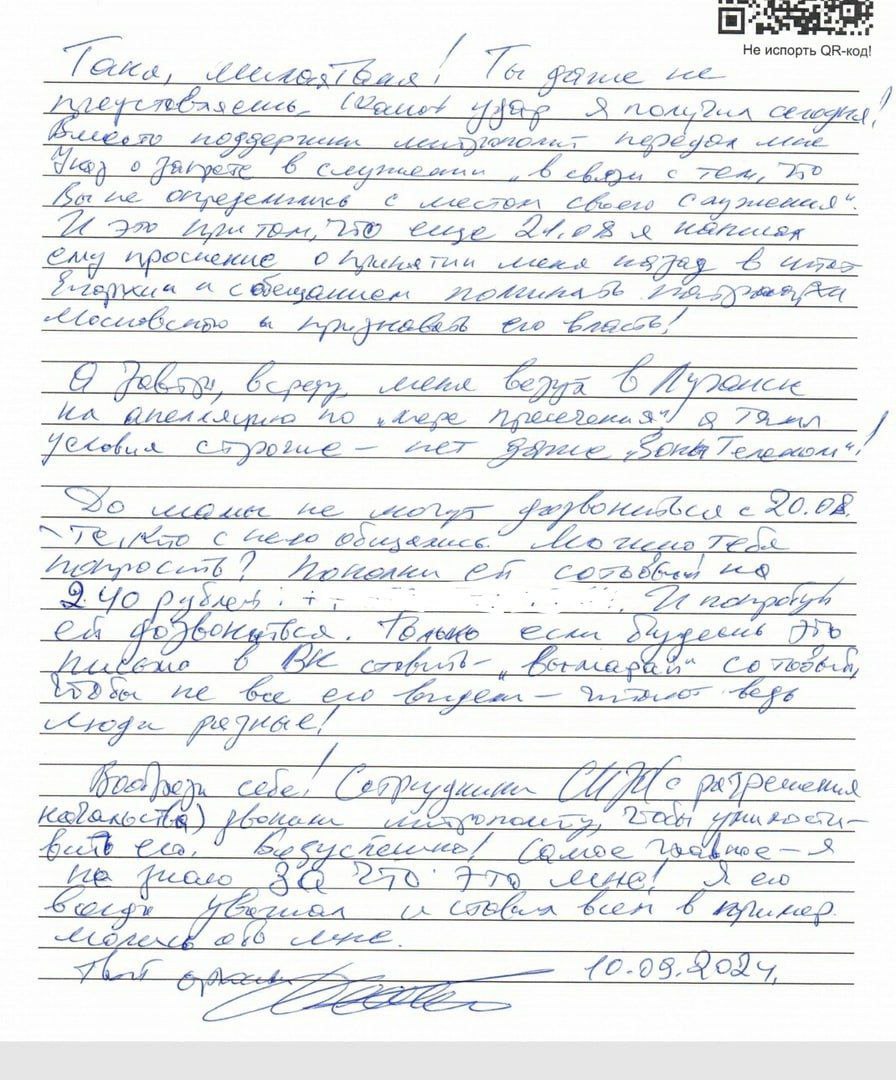 Не испорть QR-код!
Таня, милая Таня! Ты даже не
представляешь, какой удар я получил сегодня!
Вместо поддержки митрополит передал мне
Указ о запрете в служении „в связи с тем, что
Вы не определились с местом своего служения“.
И это при том, что еще 21.08 я написал
ему прошение о принятии меня назад в штат
Епархии и с обещанием поминать патриарха
Московского и признавать его власть!
А завтра, в среду, меня везут в Луганск
на апелляцию по „мере пресечения“, а там
условия строгие – нет даже „Зона Телеком“!
До мамы не могут дозвониться с 20.08.
Те, кто с нею общались. Можно тебя
попросить? Пополни ей сотовый на
240 рублей: +
И попробуй
ей дозвониться. Только если будешь это
письмо в ВК ставить – „вымарай“ сотовый,
чтобы не все его видели – читают ведь
люди разные!
Вообрази себе! Сотрудники СИЗО (с разрешения
начальства) звонили митрополиту, чтобы умилости-
вить его. Безуспешно! Самое главное – я
не знаю ЗА ЧТО ЭТО мне! Я его
всегда уважал и ставил всем в пример.
Молись обо мне.
Твой
10.09.2024.